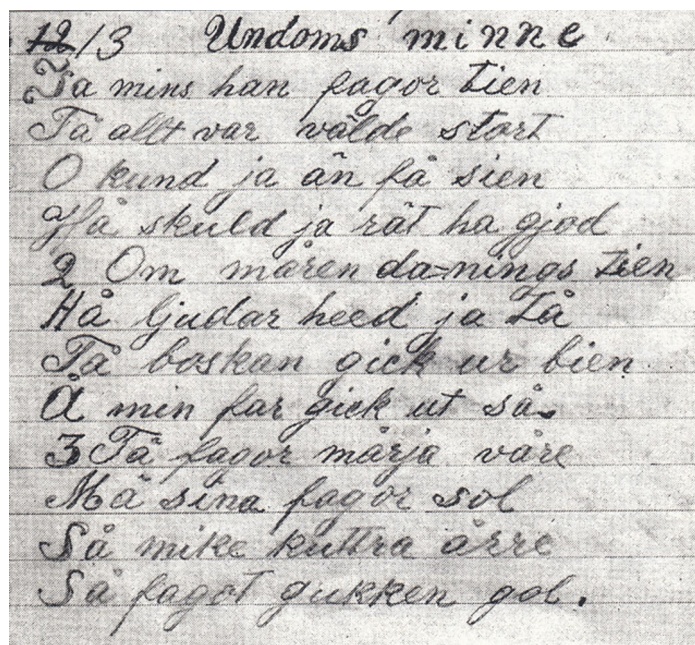 12/3 Undoms minne
Ja mins han fagor tien
Tå allt var välde stort
O kund ja än få sien
Hå skuld ja rät ha gjod
2 Om måren da=nings tien
Hå ljudar heed ja tå
Tå boskan gick ur bien
Å min far gick ut så
3 Tå fagor mårja våre
Må sina fagor sol
Så mike kuttra årre
Så fagot gukken gol.